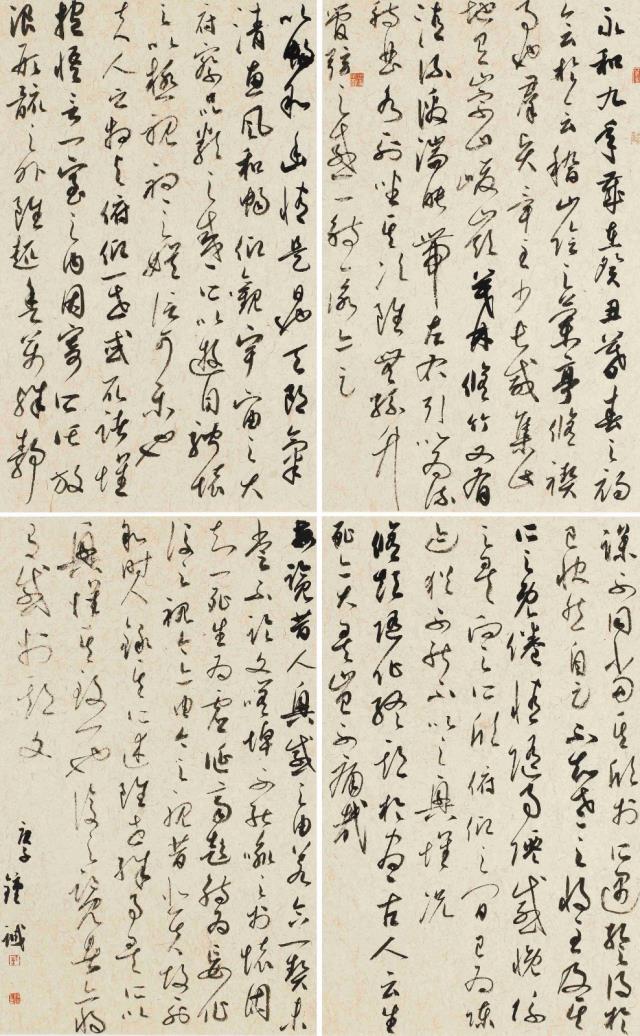 永和九年歲在癸丑暮春之初
會於會稽山陰之蘭亭脩禊
事也羣賢畢至少長咸集此
地有崇山峻嶺茂林脩竹又有
清流激湍映帶左右引以為流
觴曲水列坐其次雖無絲竹
管弦之盛一觴一詠亦足
以暢敘幽情是日也天朗氣
清惠風和暢仰觀宇宙之大
府察品類之盛所以遊目騁懷
足以極視聽之娛信可樂也
夫人之相與俯仰一世或取諸懷
抱悟言一室之內因寄所託放
浪形骸之外雖趣舍萬殊靜
躁不同當其欣於所遇暫得於
己快然自足不知老之將至及其
所之既倦情隨事遷感慨係
之矣向之所欣俯仰之間已為陳
迹猶不能不以之興懷況
脩短隨化終期於盡古人云生
死亦大矣豈不痛哉
每覽昔人興感之由若合一契未
嘗不臨文嗟悼不能喻之於懷固
知一死生為虛誕齊彭殤為妄作
後之視今亦由今之視昔悲夫故列
敘時人錄其所述雖世殊事異所以
興懷其致一也後之覽者亦將
有感於斯文
庚子鐘誠